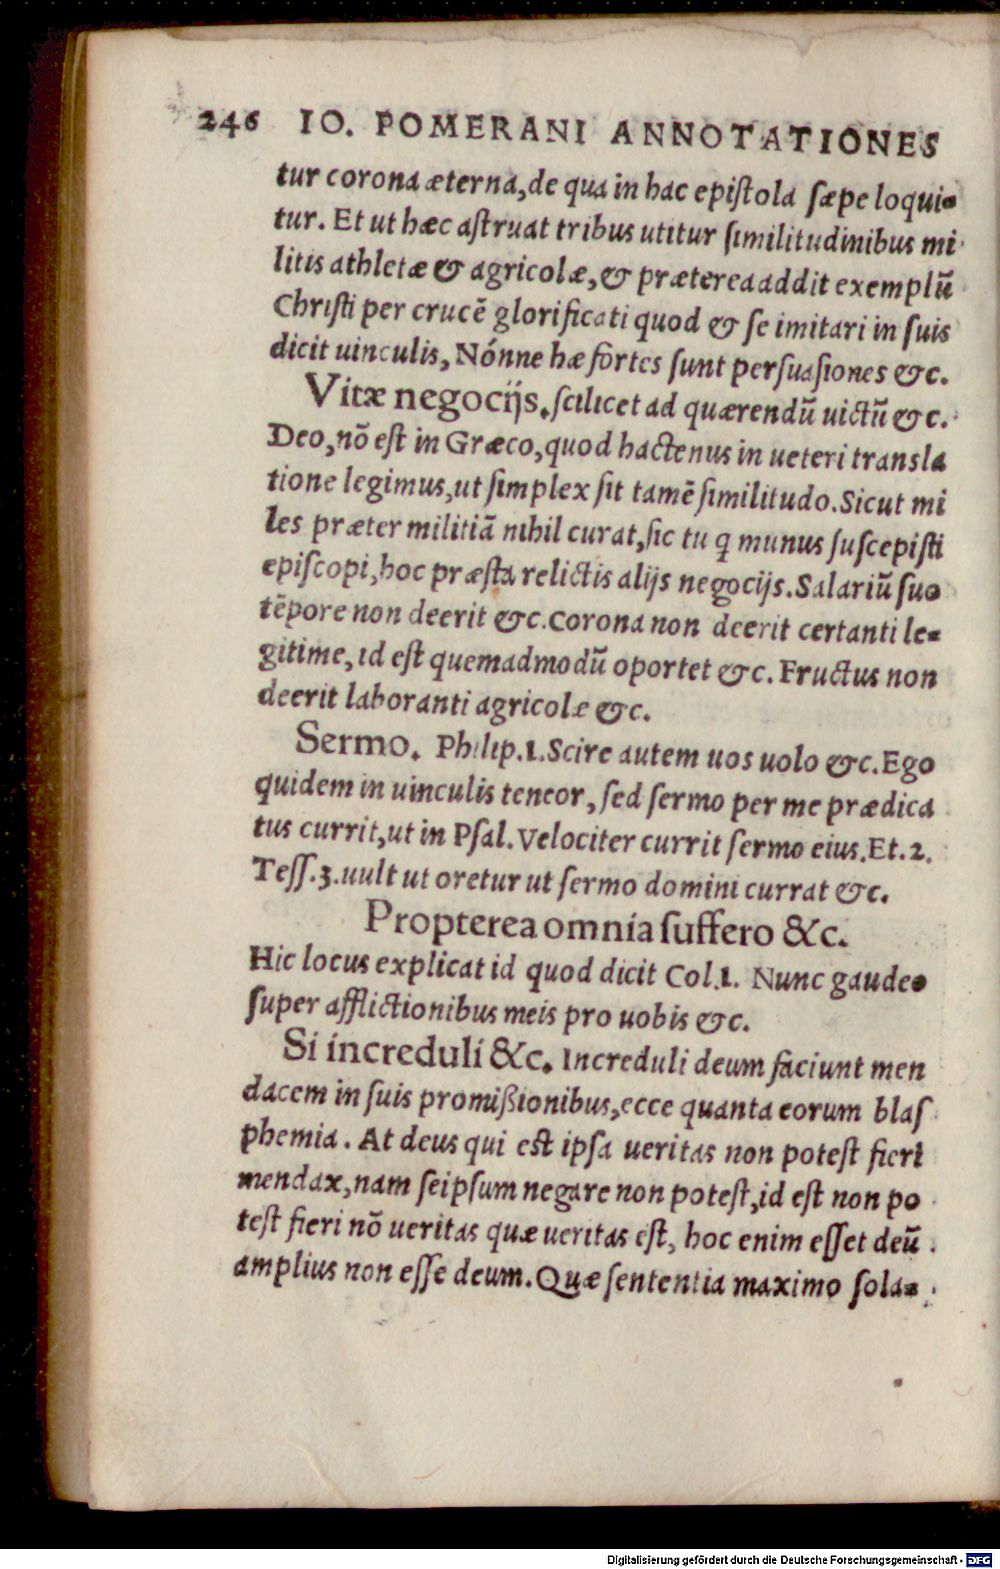 246 IO. POMERANI ANNOTATIONES
tur corona æterna, de qua in hac epiſtola ſæpe loqui-
tur. Et ut hæc aſtruat tribus utitur ſimilitudinibus mi
litis athletæ & agricolæ, & præterea addit exemplū
Chriſti per crucē glorificati quod & ſe imitari in ſuis
dicit uinculis, Nónne hæ fortes ſunt perſuaſiones &c.
Vitæ negocijs. ſcilicet ad quærendū uictū &c.
Deo, nō eſt in Græco, quod hactenus in ueteri transla
tione legimus, ut ſimplex ſit tamē ſimilitudo. Sicut mi
les præter militiā nihil curat, ſic tu q munus ſuſcepiſti
epiſcopi, hoc præſta relictis alijs negocijs. Salariū ſuo
tēpore non deerit &c. Corona non deerit certanti le-
gitime, id eſt quemadmodū oportet &c. Fructus non
deerit laboranti agricolæ &c.
Sermo. Philip. 1. Scire autem uos uolo &c. Ego
quidem in uinculis teneor, ſed ſermo per me prædica
tus currit, ut in Pſal. Velociter currit ſermo eius. Et. 2.
Teſſ. 3. uult ut oretur ut ſermo domini currat &c.
Propterea omnia ſuffero &c.
Hic locus explicat id quod dicit Col. 1. Nunc gaudeo
ſuper afflictionibus meis pro uobis &c.
Si increduli &c. Increduli deum faciunt men
dacem in ſuis promißionibus, ecce quanta eorum blaſ
phemia. At deus qui eſt ipſa ueritas non poteſt fieri
mendax, nam ſeipſum negare non poteſt, id eſt non po
teſt fieri nō ueritas quæ ueritas eſt, hoc enim eſſet deū
amplius non eſſe deum. Quæ ſententia maximo ſola-
Digitalisierung gefördert durch die Deutsche Forschungsgemeinschaft - DFG